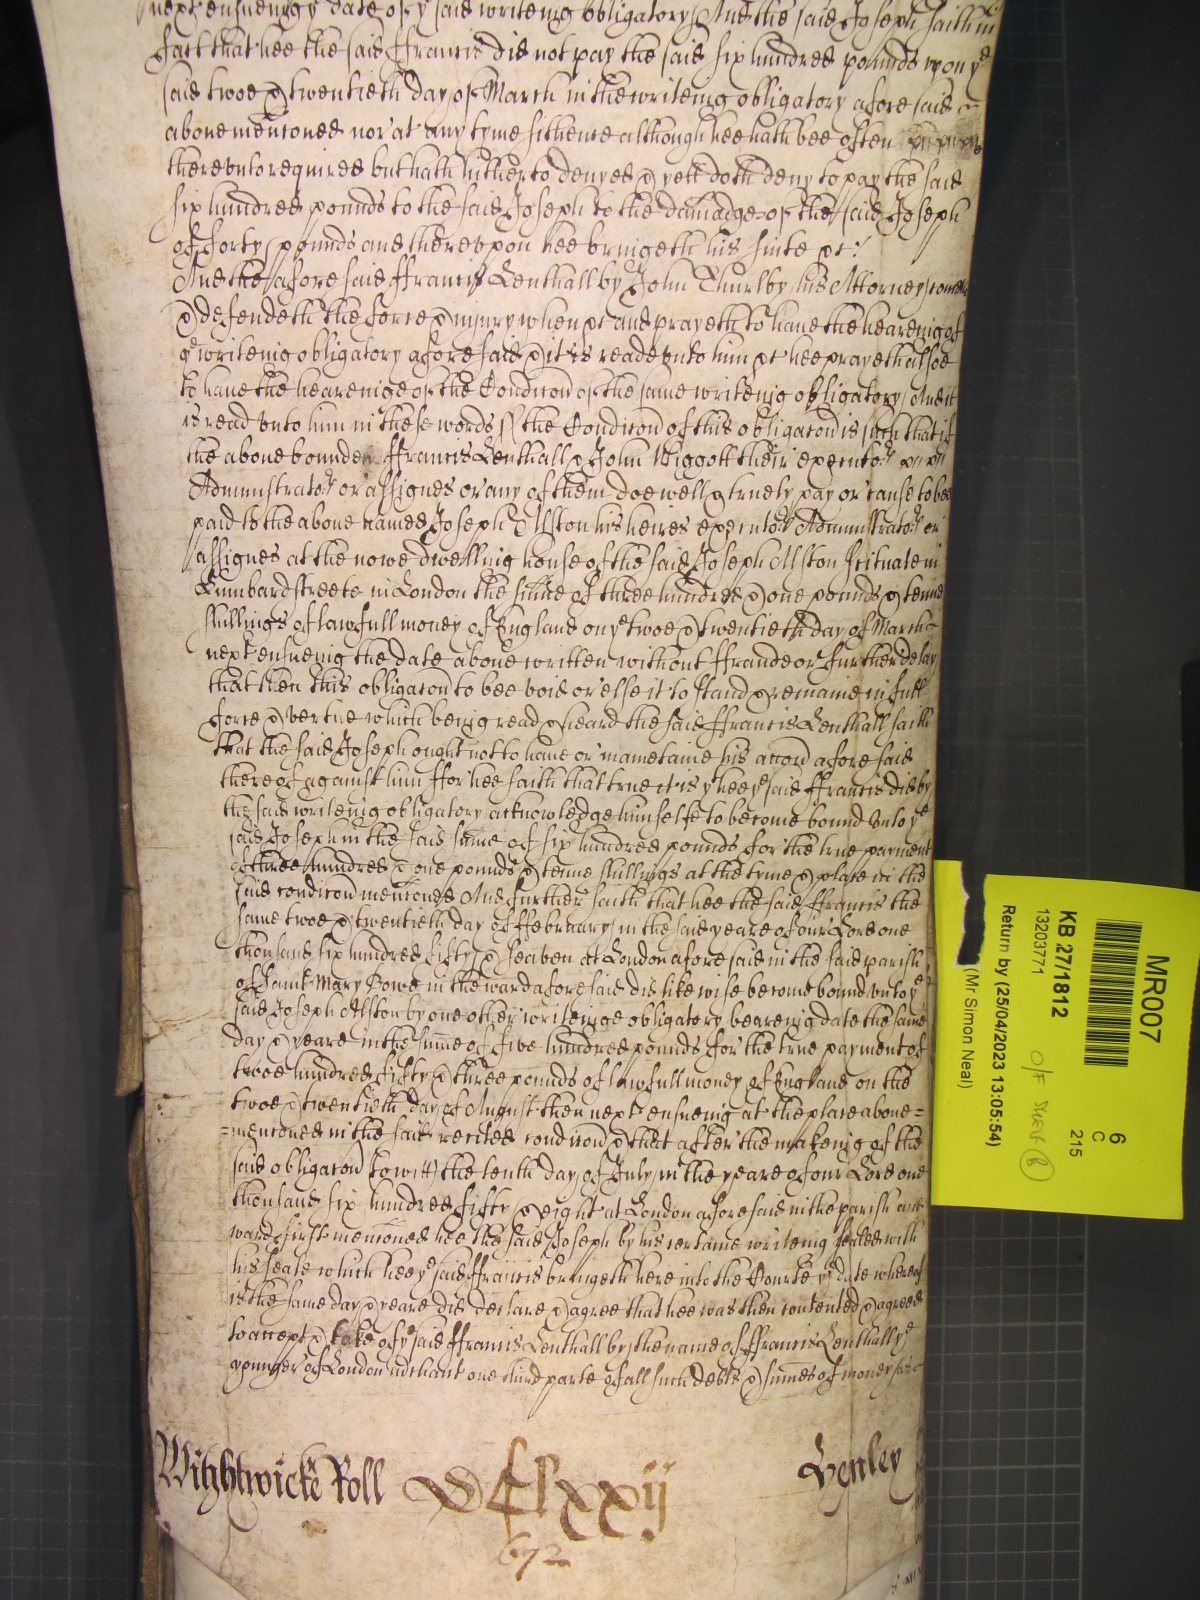 next ensueing ye date of ye said writeing obligatory And the said Joseph saith in
fact that hee the said ffrancis did not pay the said six hundred pounds upon ye
said twoe & twentieth day of March in the writeing obligatory afore said
above mencioned nor at any tyme sithence although hee hath bee often
thereunto required but hath hitherto denyed & yett doth deny to pay the said
six hundred pounds to the said Joseph to the damadge of the said Joseph
of forty pounds and thereupon hee bringeth his suite &c:
And the afore said ffrancis Lenthall by John Thurlby his Attorney comes
& defendeth the force & injury when &c and prayeth to have the heareing of
ye writeing obligatory afore said & it is reade unto him &c hee prayeth alsoe
to have the heareinge of the Condicion of the same writeing obligatory And it
is read unto him in these words ss the Condicion of this obligacion is such that if
the above bounden ffrancis Lenthall & John Wiggott their executors
Administrators or assignes or any of them doe well & truely pay or cause to bee
paid to the above named Joseph Alston his heires executors Administrators or
assignes at the nowe dwelling house of the said Joseph Alston scituate in
Lumbard streete in London the sume of three hundred & one pounds & tenne
shillings of lawfull money of England on ye twoe & twentieth day of March
next ensueing the date above written without ffraude or further delay
that then this obligacion to bee void or else it to stand & remaine in full
force & vertue which being read & heard the said ffrancis Lenthall saith
that the said Joseph ought not to have or mainetaine his accion afore said
thereof against him ffor hee saith that true it is yt hee ye said ffrancis did by
the said writeing obligatory acknowledge himselfe to become bound unto ye
said Joseph in the said sume of six hundred pounds for the true payment
of three hundred & one pounds & tenne shillings at the tyme & place in the
said condicion mencioned And further saith that hee the said ffrancis the
same twoe & twentieth day of ffebruary in the said yeare of our Lord one
thousand six hundred fifty & seaven at London afore said in the said parish
of Saint Mary Bowe in the ward afore said did likewise become bound unto ye
said Joseph Alston by one other writeinge obligatory beareing date the same
day & yeare in the sume of five hundred pounds for the true payment of
twoe hundred fifty & three pounds of lawfull money of England on the
twoe & twentieth day of August then next ensueing at the place above=
=mencioned in the said recited condicion & that after the makeing of the
said obligacion to witt the tenth day of July in the yeare of our Lord one
thousand six hundred fifty & eight at London afore said in the parish and
ward first mencioned hee the said Joseph by his certaine writeing sealed with
his seale which hee ye said ffrancis bringeth here into the Courte ye date whereof
is the same day & yeare did declare & agree that hee was then contented & agreed
to accept & take of ye said ffrancis Lenthall by the name of ffrancis Lenthall ye
younger of London mchant one third parte of all such debts & sumes of money as
Wightwicke Roll DClxxij Henley
672
MR007
KB 27/1812
13203771
Return by (25/04/2023 13:05:54)
(Mr Simon Neal)
6
C
215
O/F SHELF B